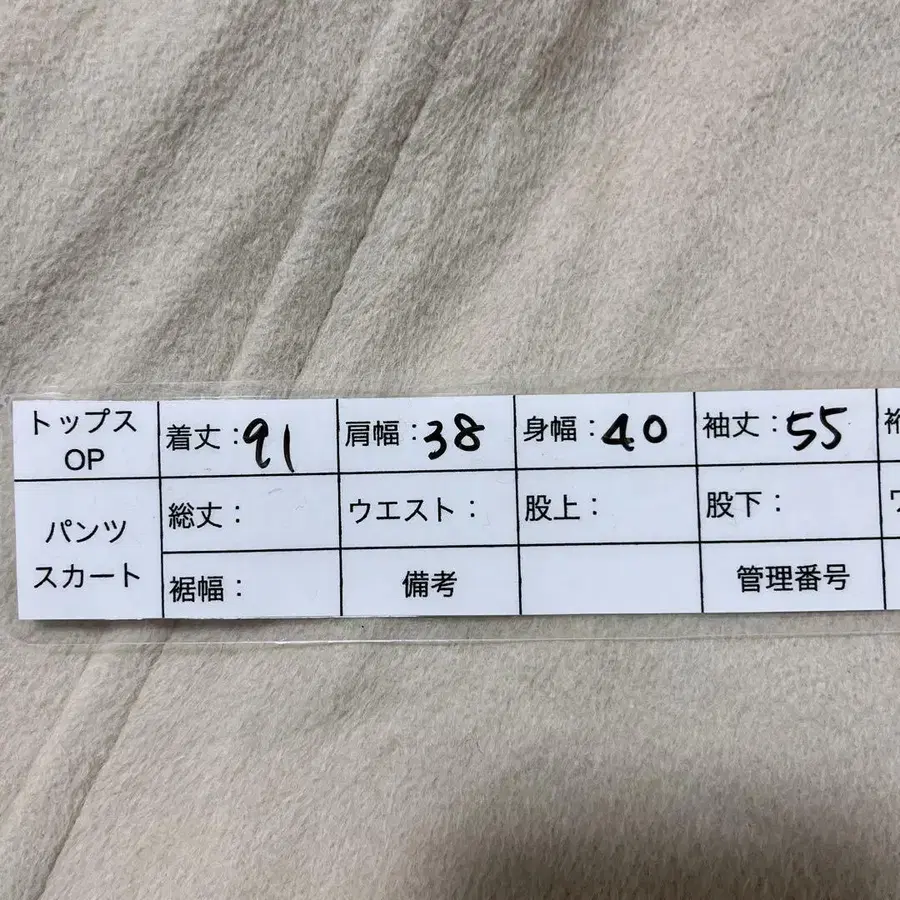 トップス
OP
着丈:91
肩幅:38
身幅:40
袖丈:55
パンツ
スカート
総丈:
ウエスト:
股上:
股下:
裾幅:
備考
管理番号